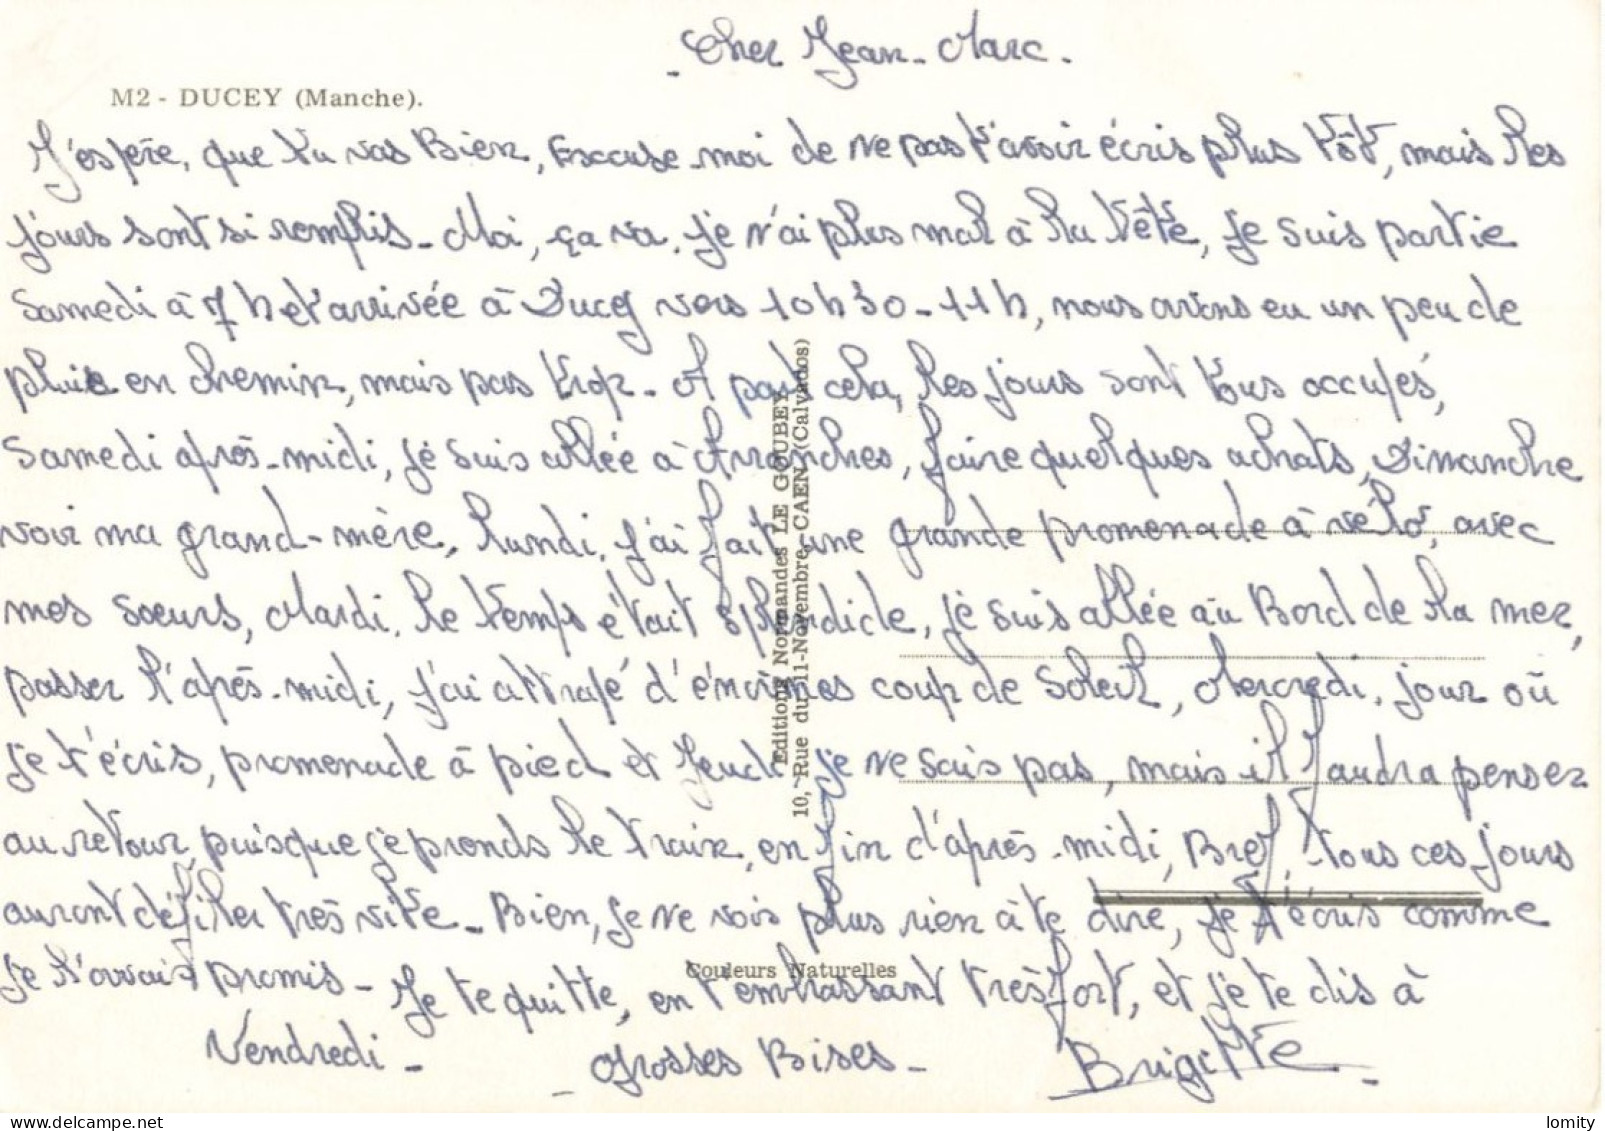 - Cher Jean-Marc.
M2 - DUCEY (Manche).
J'espère, que tu vas Bien, Excuse-moi de ne pas t'avoir écris plus tôt, mais les
jours sont si remplis - Moi, ça va. Je n'ai plus mal à la tête, Je suis partie
Samedi à 7h et arrivée à Ducey vers 10h30-11h, nous avons eu un peu de
pluie en chemin, mais pas trop - A part cela, les jours sont tous occupés,
Samedi après-midi, je suis allée à Avranches, faire quelques achats, Dimanche
voir ma grand-mère, Lundi, j'ai fait une grande promenade à vélo, avec
mes soeurs, Mardi, le temps était splendide, je suis allée au Bord de la mer,
passer l'après-midi, j'ai attrapé d'énormes coup de Soleil, Mercredi, jour où
je t'écris, promenade à pied et Jeudi je ne sais pas, mais il faudra penser
au retour, puisque je prends le train, en fin d'après-midi, Bref, tous ces jours
auront défiler très vite - Bien, je ne vois plus rien à te dire, je t'écris comme
je l'avais promis - Je te quitte, en t'embrassant très fort, et je te dis à
Vendredi - - Grosses Bises - Brigitte -
Editions Normandes LE GOUBEY
10, Rue du 11-Novembre, CAEN (Calvados)
Couleurs Naturelles
lomity
www.delcampe.net